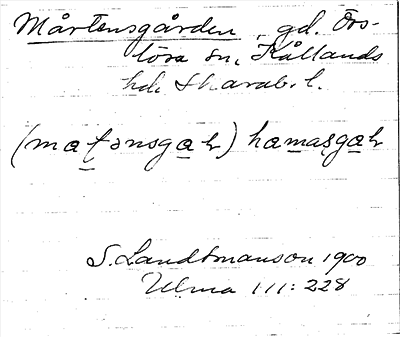 Mårtensgården, gd. Örs-
lösa sn, Kållands
hd. Skarab. l.
(matənsgaḷ) hamasgaḷ
S. Landtmanson 1900
Ulma 111: 228